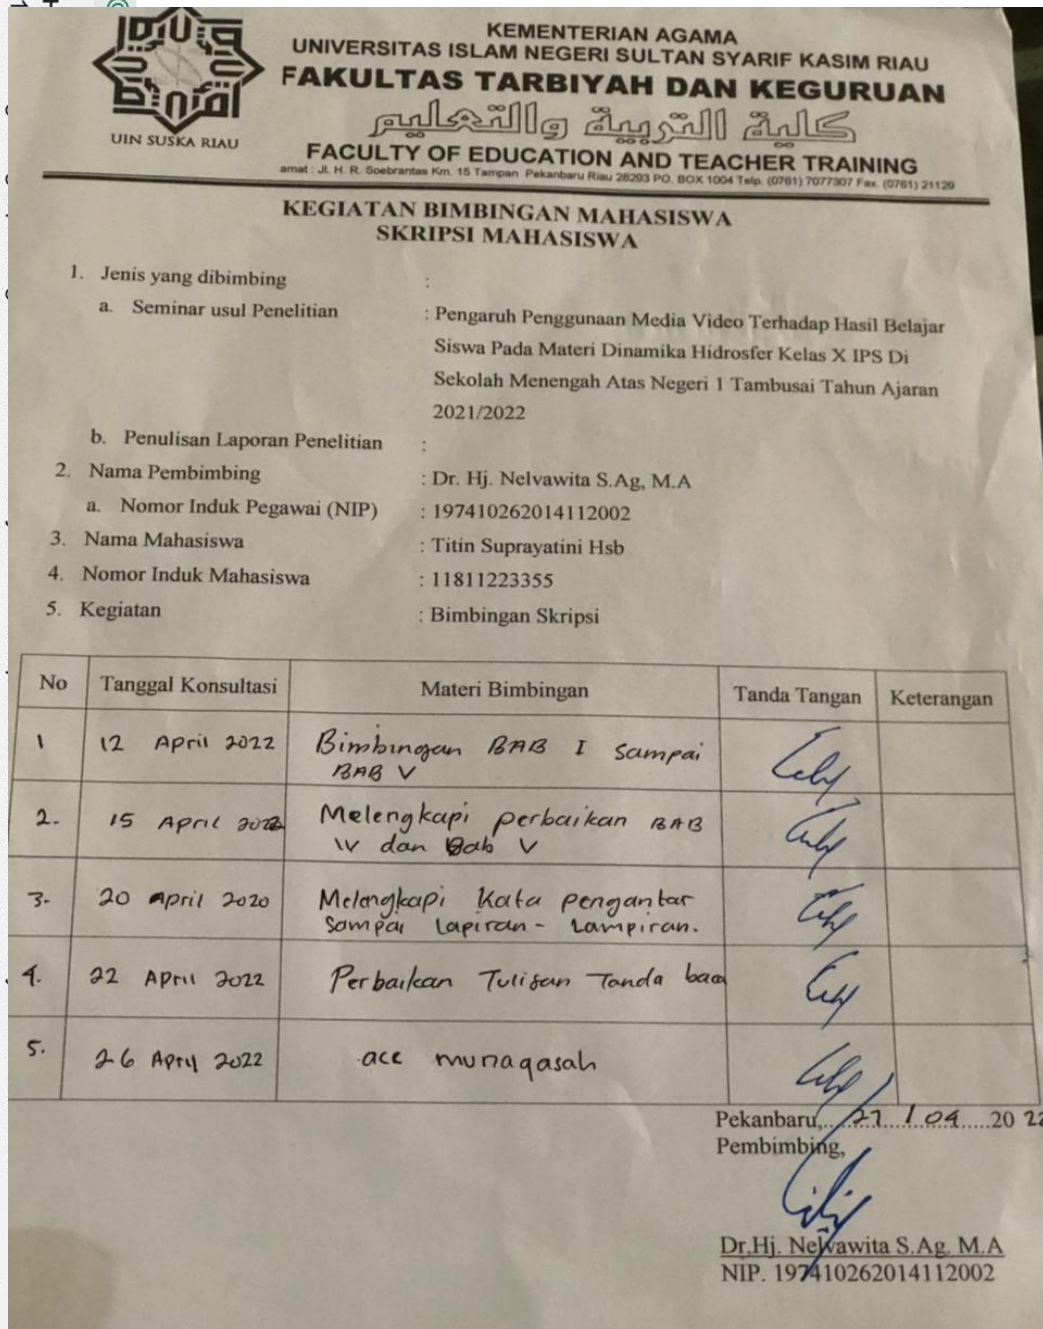 UIN SUSKA RIAU
KEMENTERIAN AGAMA
UNIVERSITAS ISLAM NEGERI SULTAN SYARIF KASIM RIAU
FAKULTAS TARBIYAH DAN KEGURUAN
كلية التربية والتعليم
FACULTY OF EDUCATION AND TEACHER TRAINING
amat : Jl. H. R. Soebrantas Km. 15 Tampan Pekanbaru Riau 28293 PO. BOX 1004 Telp. (0761) 7077307 Fax. (0761) 21129
KEGIATAN BIMBINGAN MAHASISWA
SKRIPSI MAHASISWA
1. Jenis yang dibimbing :
a. Seminar usul Penelitian : Pengaruh Penggunaan Media Video Terhadap Hasil Belajar
Siswa Pada Materi Dinamika Hidrosfer Kelas X IPS Di
Sekolah Menengah Atas Negeri 1 Tambusai Tahun Ajaran
2021/2022
b. Penulisan Laporan Penelitian :
2. Nama Pembimbing : Dr. Hj. Nelvawita S.Ag, M.A
a. Nomor Induk Pegawai (NIP) : 197410262014112002
3. Nama Mahasiswa : Titin Suprayatini Hsb
4. Nomor Induk Mahasiswa : 11811223355
5. Kegiatan : Bimbingan Skripsi
No Tanggal Konsultasi Materi Bimbingan Tanda Tangan Keterangan
1 12 April 2022 Bimbingan BAB I sampai
BAB V
2. 15 April 2022 Melengkapi perbaikan BAB
IV dan Bab V
3. 20 April 2020 Melengkapi Kata pengantar
Sampai Lapiran - Lampiran.
4. 22 April 2022 Perbaikan Tulisan Tanda baca
5. 26 April 2022 acc munaqasah
Pekanbaru,.....27...1.04.....20 22
Pembimbing,
Dr.Hj. Nelvawita S.Ag. M.A
NIP. 197410262014112002